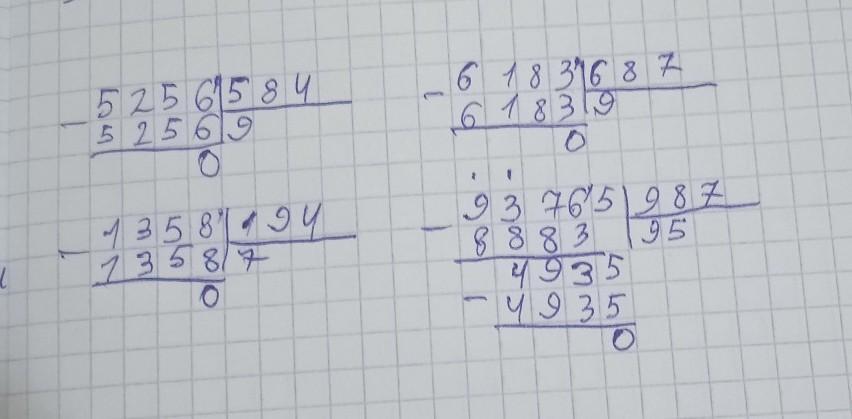 5256 584
- 5256 9
0
6183 687
- 6183 9
0
1358 194
- 1358 7
0
93765 987
- 8883 95
4935
- 4935
0